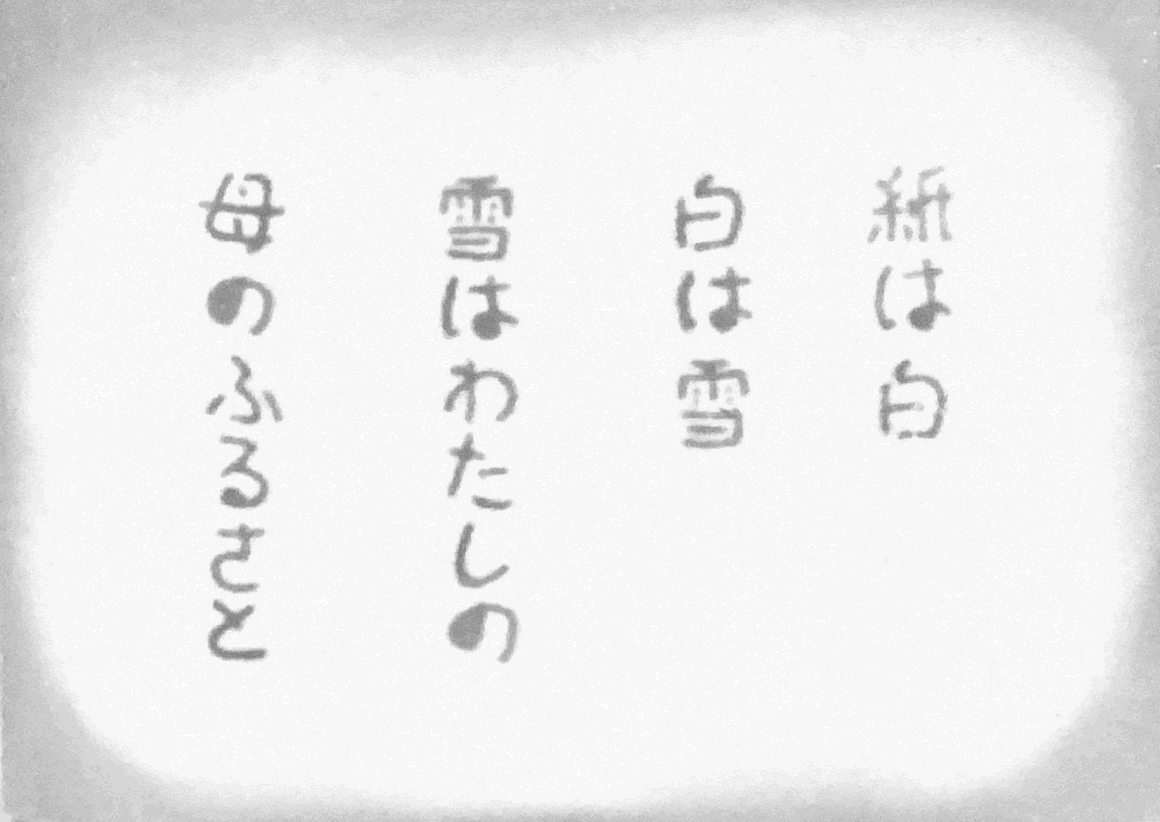 紙は白
白は雪
雪はわたしの
母のふるさと